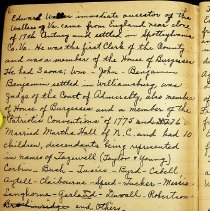 Edward Waller immediate ancestor of the
Wallers of Va. came from England near close
of 17th Century and settled in Spottsylvania
Co. Va. He was the first Clerk of the County
and was a member of the House of Burgesses
He had 3 sons; Wm - John - Benjamin
Benjamin settled in Williamsburg, was
Judge of the Court of Admiralty, also member
of House of Burgesses and a member of the
"Patriotic Conventions" of 1775 and 1776.
Married Martha Hall of N.C. and had 10
children, descendants being represented
in names of Tazewell (Taylor & Young)
Corbin - Bush - Travis - Byrd - Cabell
Lyell - Claiborne - Speed - Tucker - Morris
Langhorne - Garland - Jewell - Robertson
and others.